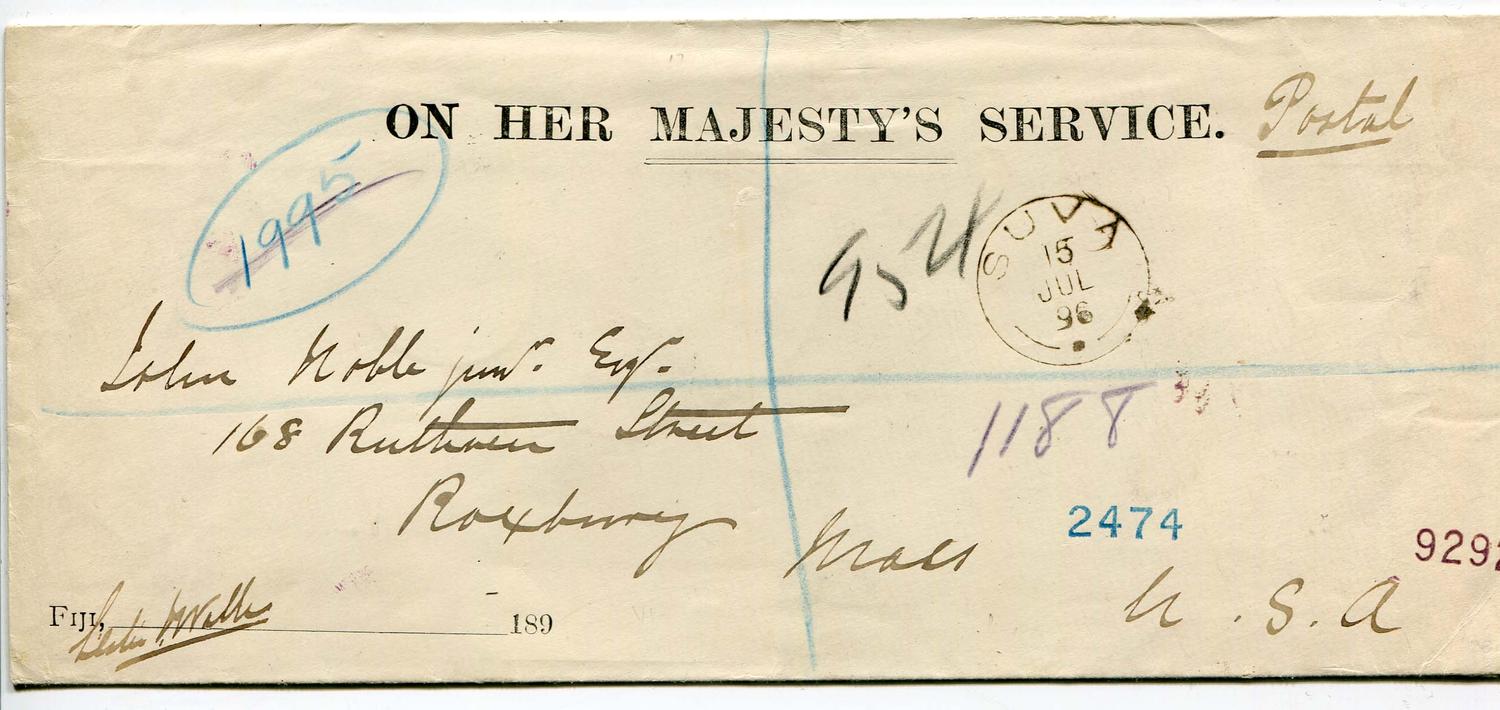 ON HER MAJESTY'S SERVICE. Postal
1995
95
SUVA
15
JUL
96
John Noble junr. Esqr.
168 Ruthven Street
1188
Roxbury
2474
Mass
9292
U.S.A
FIJI, 189